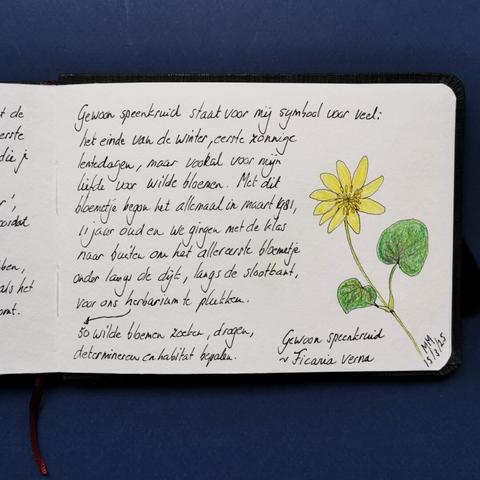 t de
erste
die j
r',
oordat
ben,
als het
omt.
Gewoon speenkruid staat voor mij symbool voor veel:
het einde van de winter, eerste zonnige
lentedagen, maar vooral voor mijn
liefde voor wilde bloemen. Met dit
bloemetje begon het allemaal in maart 1981,
11 jaar oud en we gingen met de klas
naar buiten om het allereerste bloemetje
onder langs de dijk, langs de slootkant,
voor ons herbarium te plukken.
50 wilde bloemen zoeken, drogen,
determineren en habitat bepalen.
Gewoon speenkruid
~ Ficaria verna
MM
15/3/25